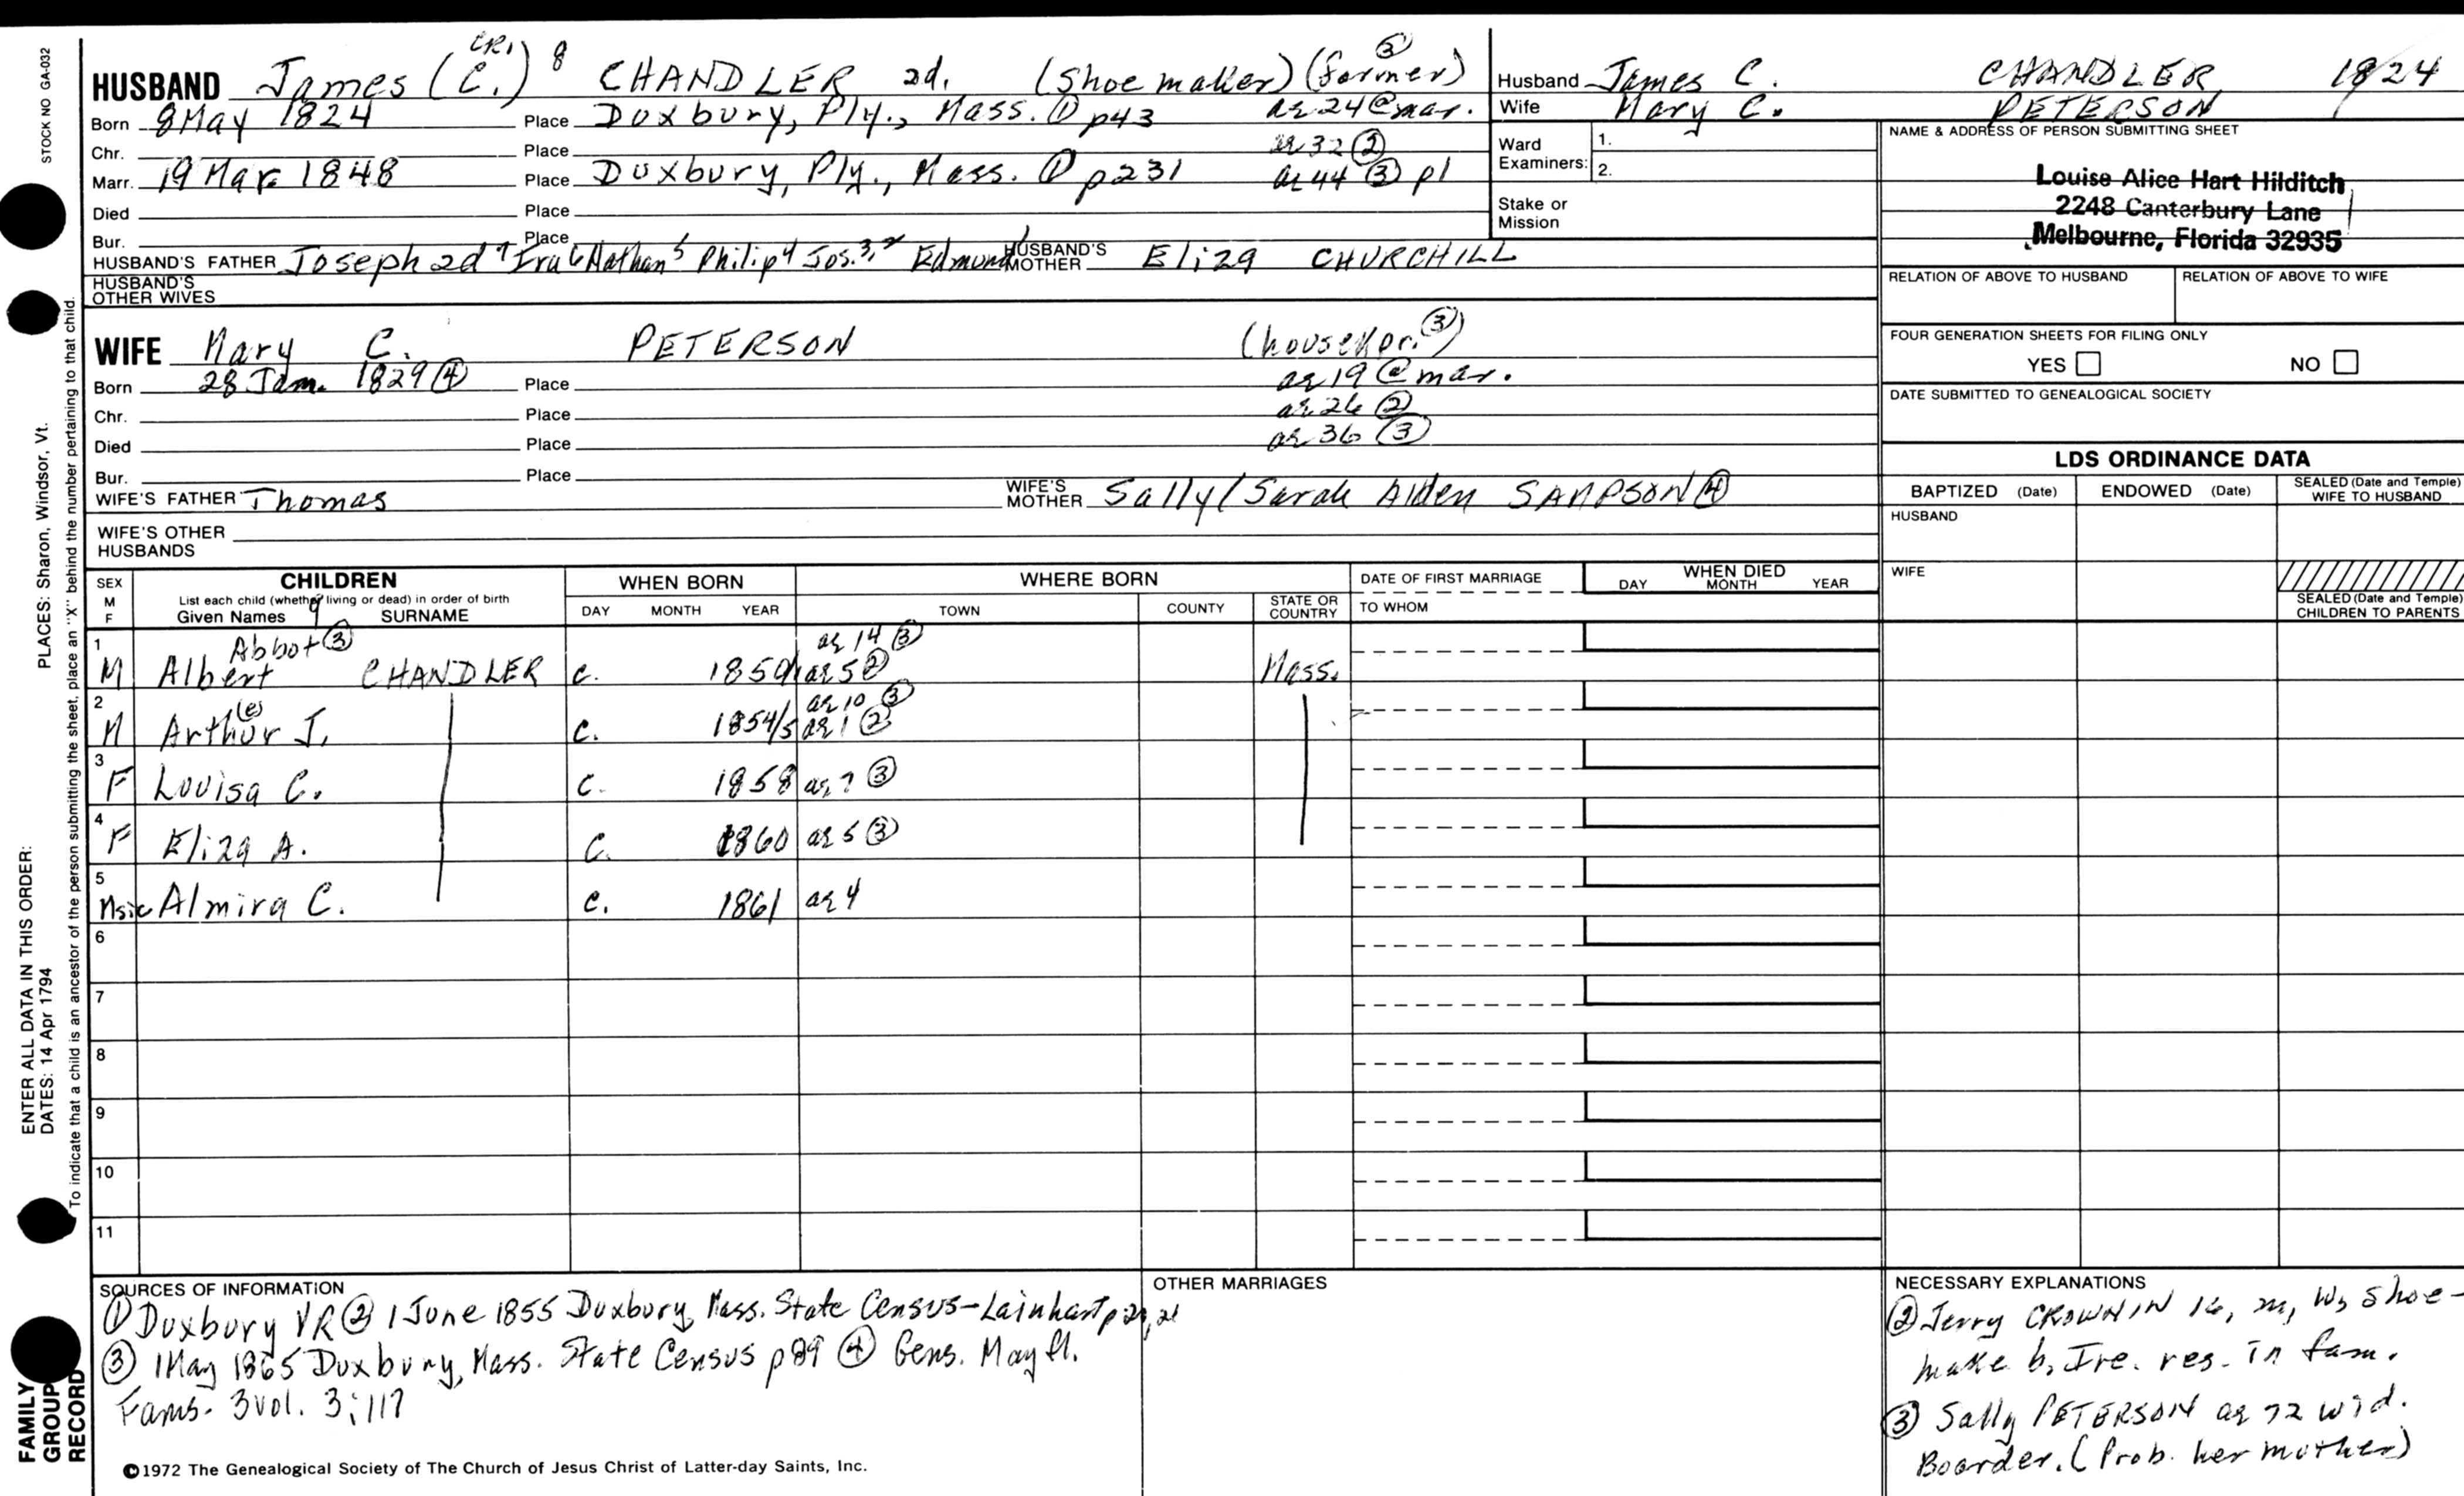 STOCK NO GA-032
HUSBAND James (C.) CR1) 8 CHANDLER 2d. (Shoe maker) (farmer) ③
Born 8 May 1824 Place Duxbury, Ply., Mass. ① p43 ae 24 @ mar.
Chr. Place ae 32 ②
Marr. 19 Mar 1848 Place Duxbury, Ply., Mass. ① p231 ae 44 ③ p1
Died Place
Bur. Place
HUSBAND'S FATHER Joseph 2d 7 Ira 6 Nathan 5 Philip 4 Jos. 3, 2 Edmund 1 HUSBAND'S MOTHER Eliza CHURCHILL
HUSBAND'S OTHER WIVES
WIFE Mary C. PETERSON (housekpr. ③)
Born 28 Jan. 1829 ④ Place ae 19 @ mar.
Chr. Place ae 26 ②
Died Place ae 36 ③
Bur. Place
WIFE'S FATHER Thomas WIFE'S MOTHER Sally/Sarah Alden SAMPSON ④
WIFE'S OTHER HUSBANDS
Husband James C. CHANDLER 1824
Wife Mary C. PETERSON
Ward Examiners: 1.
2.
Stake or Mission
NAME & ADDRESS OF PERSON SUBMITTING SHEET
Louise Alice Hart Hilditch
2248 Canterbury Lane
Melbourne, Florida 32935
RELATION OF ABOVE TO HUSBAND RELATION OF ABOVE TO WIFE
FOUR GENERATION SHEETS FOR FILING ONLY
YES NO
DATE SUBMITTED TO GENEALOGICAL SOCIETY
LDS ORDINANCE DATA
BAPTIZED (Date) ENDOWED (Date) SEALED (Date and Temple) WIFE TO HUSBAND
HUSBAND
WIFE
SEALED (Date and Temple) CHILDREN TO PARENTS
SEX M F CHILDREN WHEN BORN WHERE BORN DATE OF FIRST MARRIAGE WHEN DIED
List each child (whether living or dead) in order of birth
Given Names 9 SURNAME DAY MONTH YEAR TOWN COUNTY STATE OR COUNTRY TO WHOM DAY MONTH YEAR
1 Abbot ③ ae 14 ③
M Albert CHANDLER c. 1850 ae 5 ② Mass.
2 (e) ae 10 ③
M Arthur J. c. 1854/5 ae 1 ②
3
F Louisa C. c. 1858 ae 7 ③
4
F Eliza A. c. 1860 ae 5 ③
5
M sic Almira C. c. 1861 ae 4
6
7
8
9
10
11
SOURCES OF INFORMATION
① Duxbury VR ② 1 June 1855 Duxbury, Mass. State Census-Lainhart p 20, 21
③ 1 May 1865 Duxbury, Mass. State Census p 89 ④ Gens. May fl.
Fams. 3 vol. 3:117
©1972 The Genealogical Society of The Church of Jesus Christ of Latter-day Saints, Inc.
OTHER MARRIAGES
NECESSARY EXPLANATIONS
② Jerry CROWNIN 16, m, W, Shoe-
make b. Ire. res. in fam.
③ Sally PETERSON ae 72 wid.
Boarder. (Prob. her mother)
PLACES: Sharon, Windsor, Vt.
ENTER ALL DATA IN THIS ORDER:
DATES: 14 Apr 1794
To indicate that a child is an ancestor of the person submitting the sheet, place an "X" behind the number pertaining to that child.
FAMILY GROUP RECORD